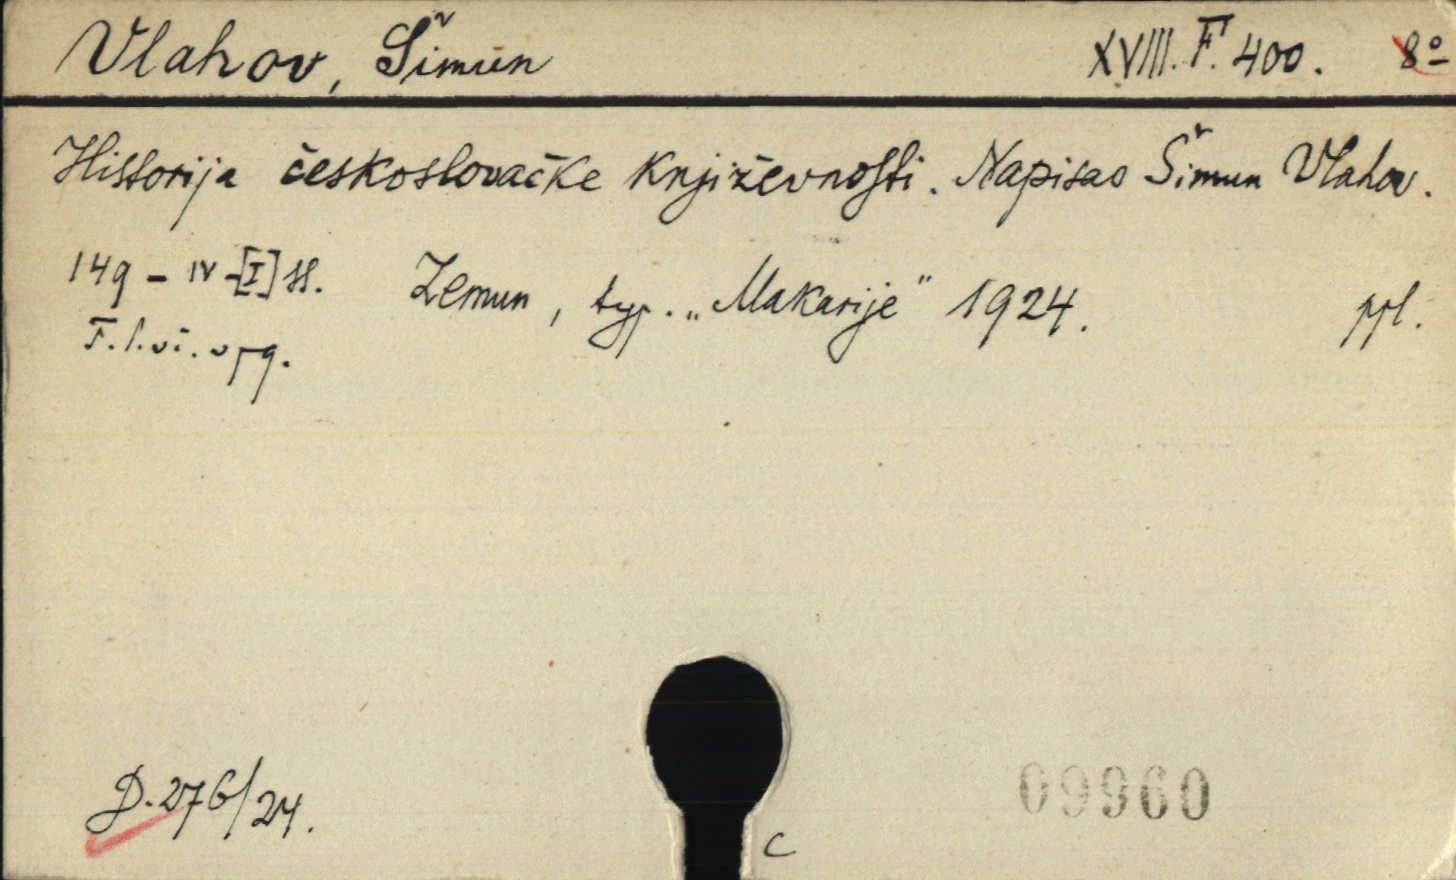 Vlahov, Šimun XVIII. F. 400. 8º
Historija československačke književnosti. Napisao Šimun Vlahov.
149 – IV – [I] SS. Zemun, typ. „Makarije" 1924. ppl.
D. 276/24.
09960
C